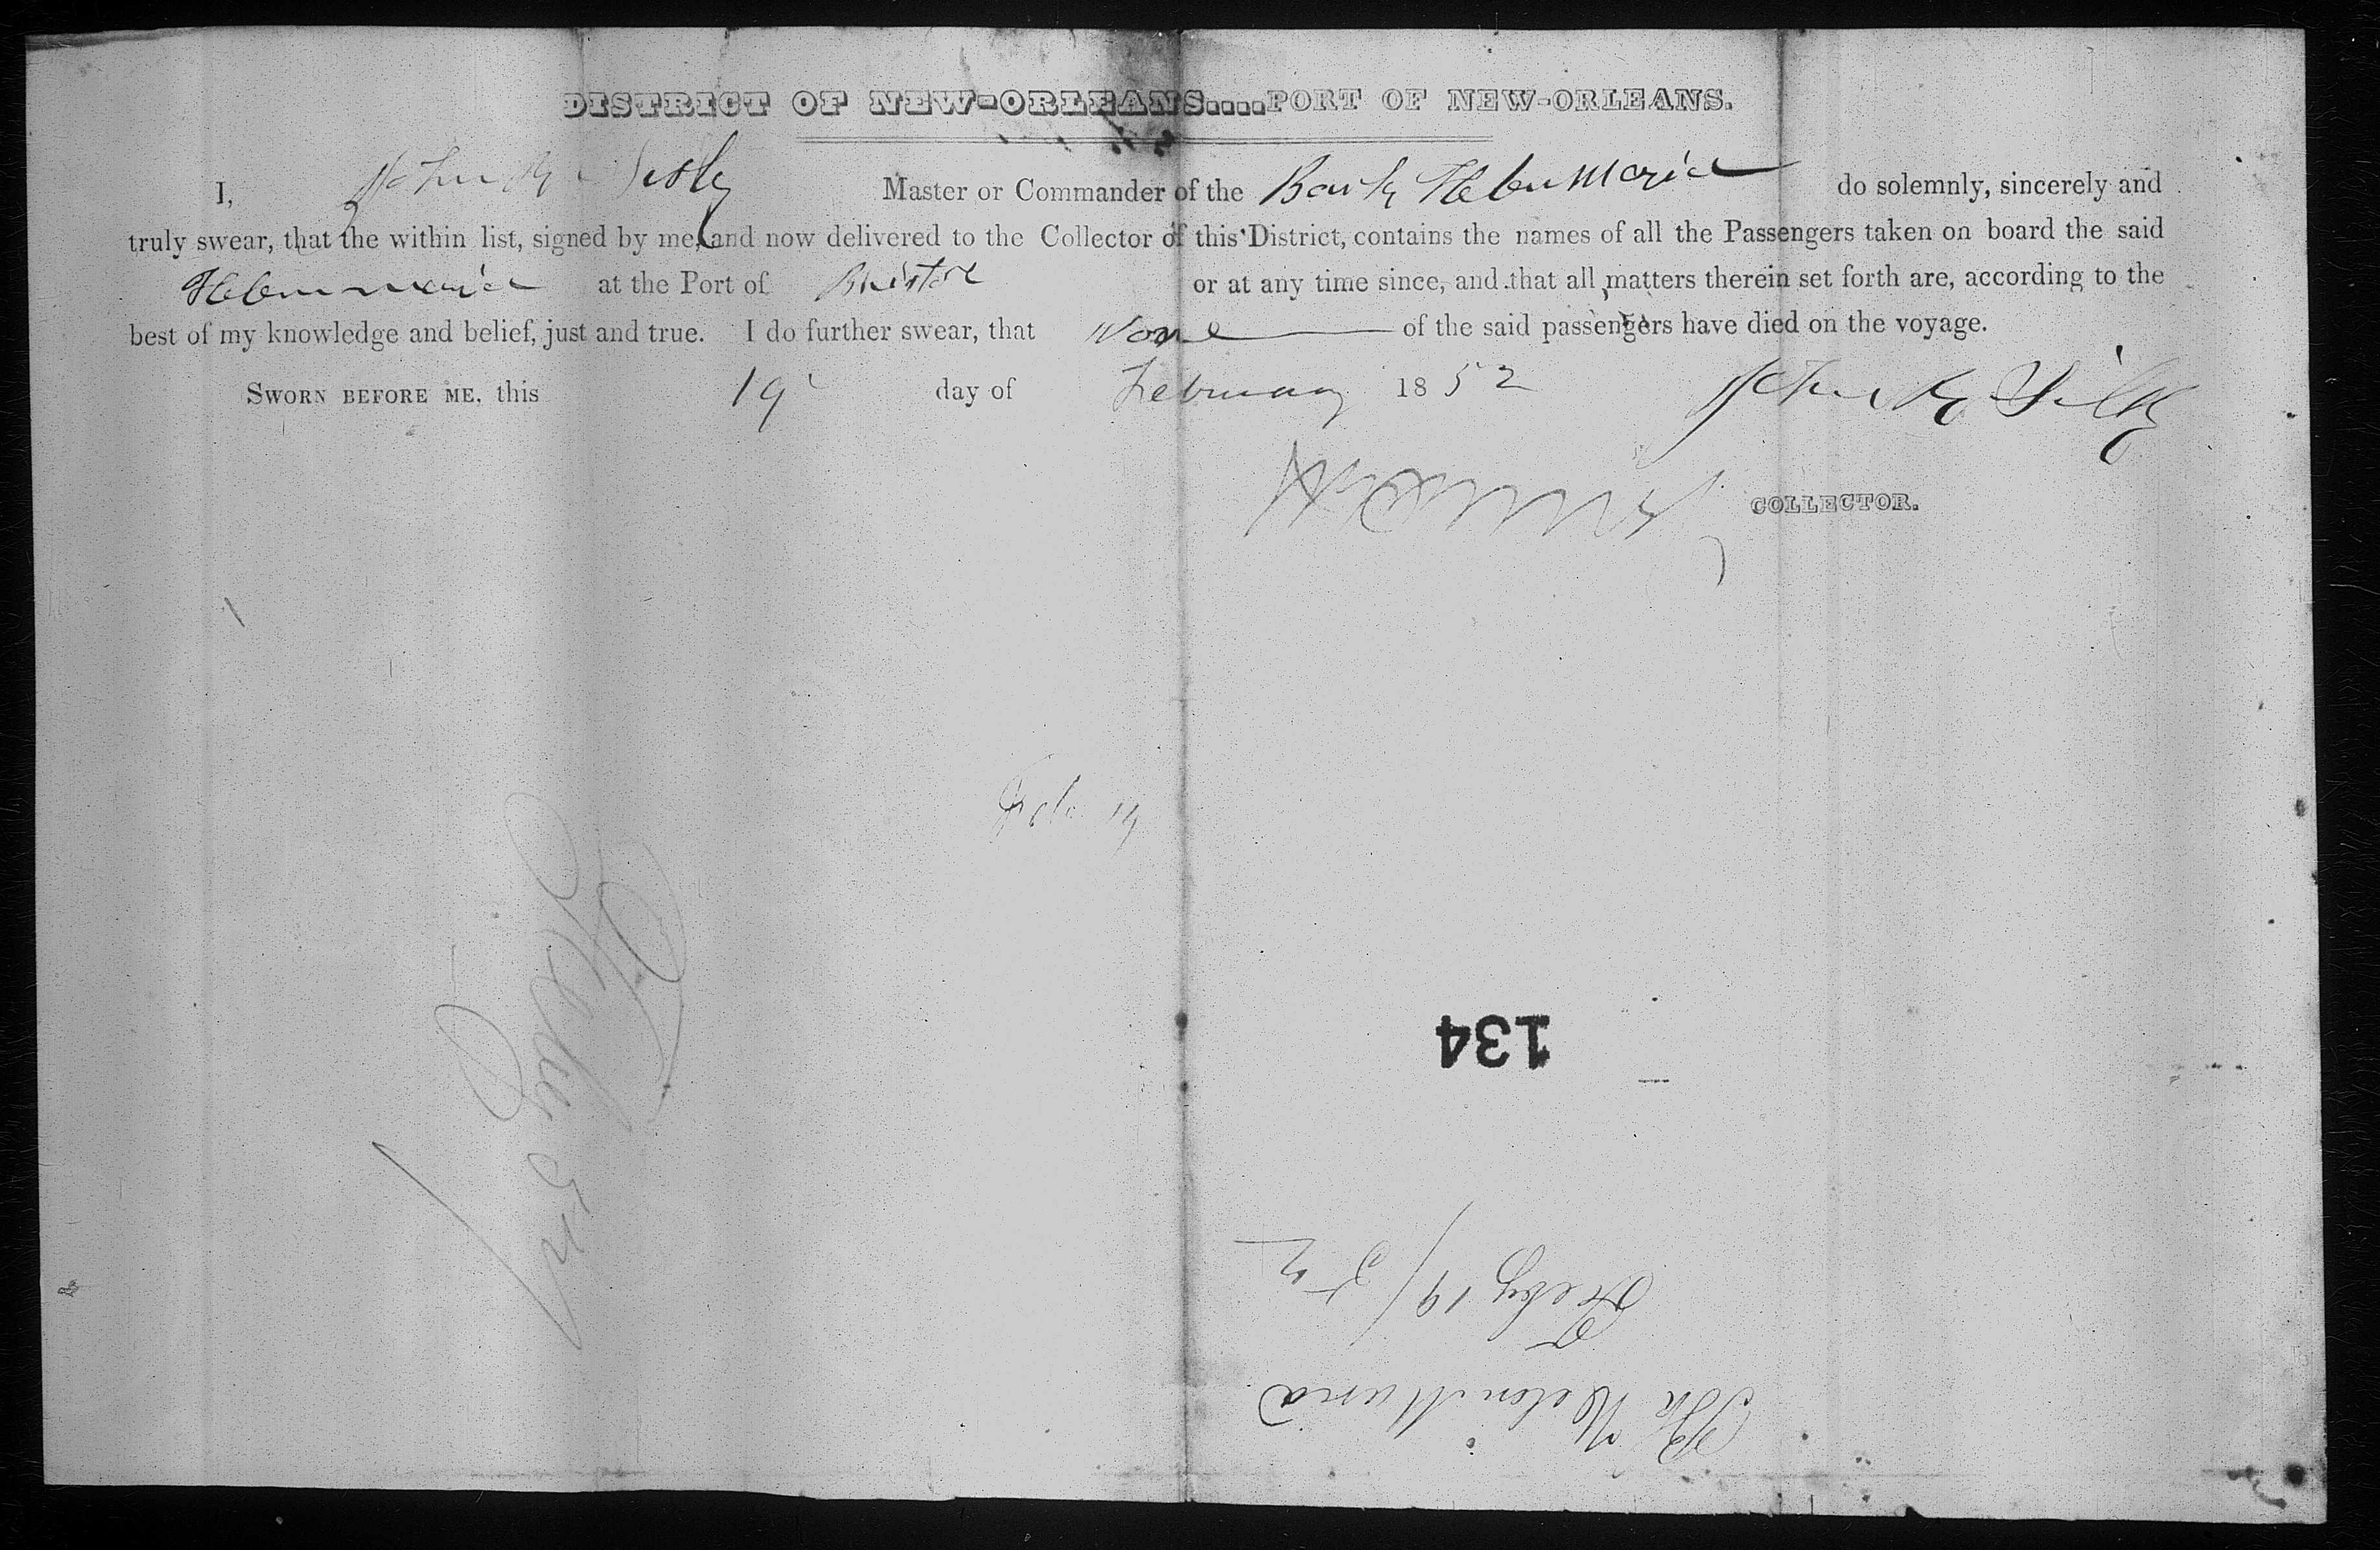 DISTRICT OF NEW-ORLEANS....PORT OF NEW-ORLEANS.
I, John Master or Commander of the Bark Helen Maria do solemnly, sincerely and
truly swear, that the within list, signed by me, and now delivered to the Collector of this District, contains the names of all the Passengers taken on board the said
Helen Maria at the Port of Bristol or at any time since, and that all matters therein set forth are, according to the
best of my knowledge and belief, just and true. I do further swear, that None of the said passengers have died on the voyage.
SWORN BEFORE ME, this 19 day of February 1852 John
COLLECTOR.
Feb. 19
134
Bk Helen Maria
Feby 19/52